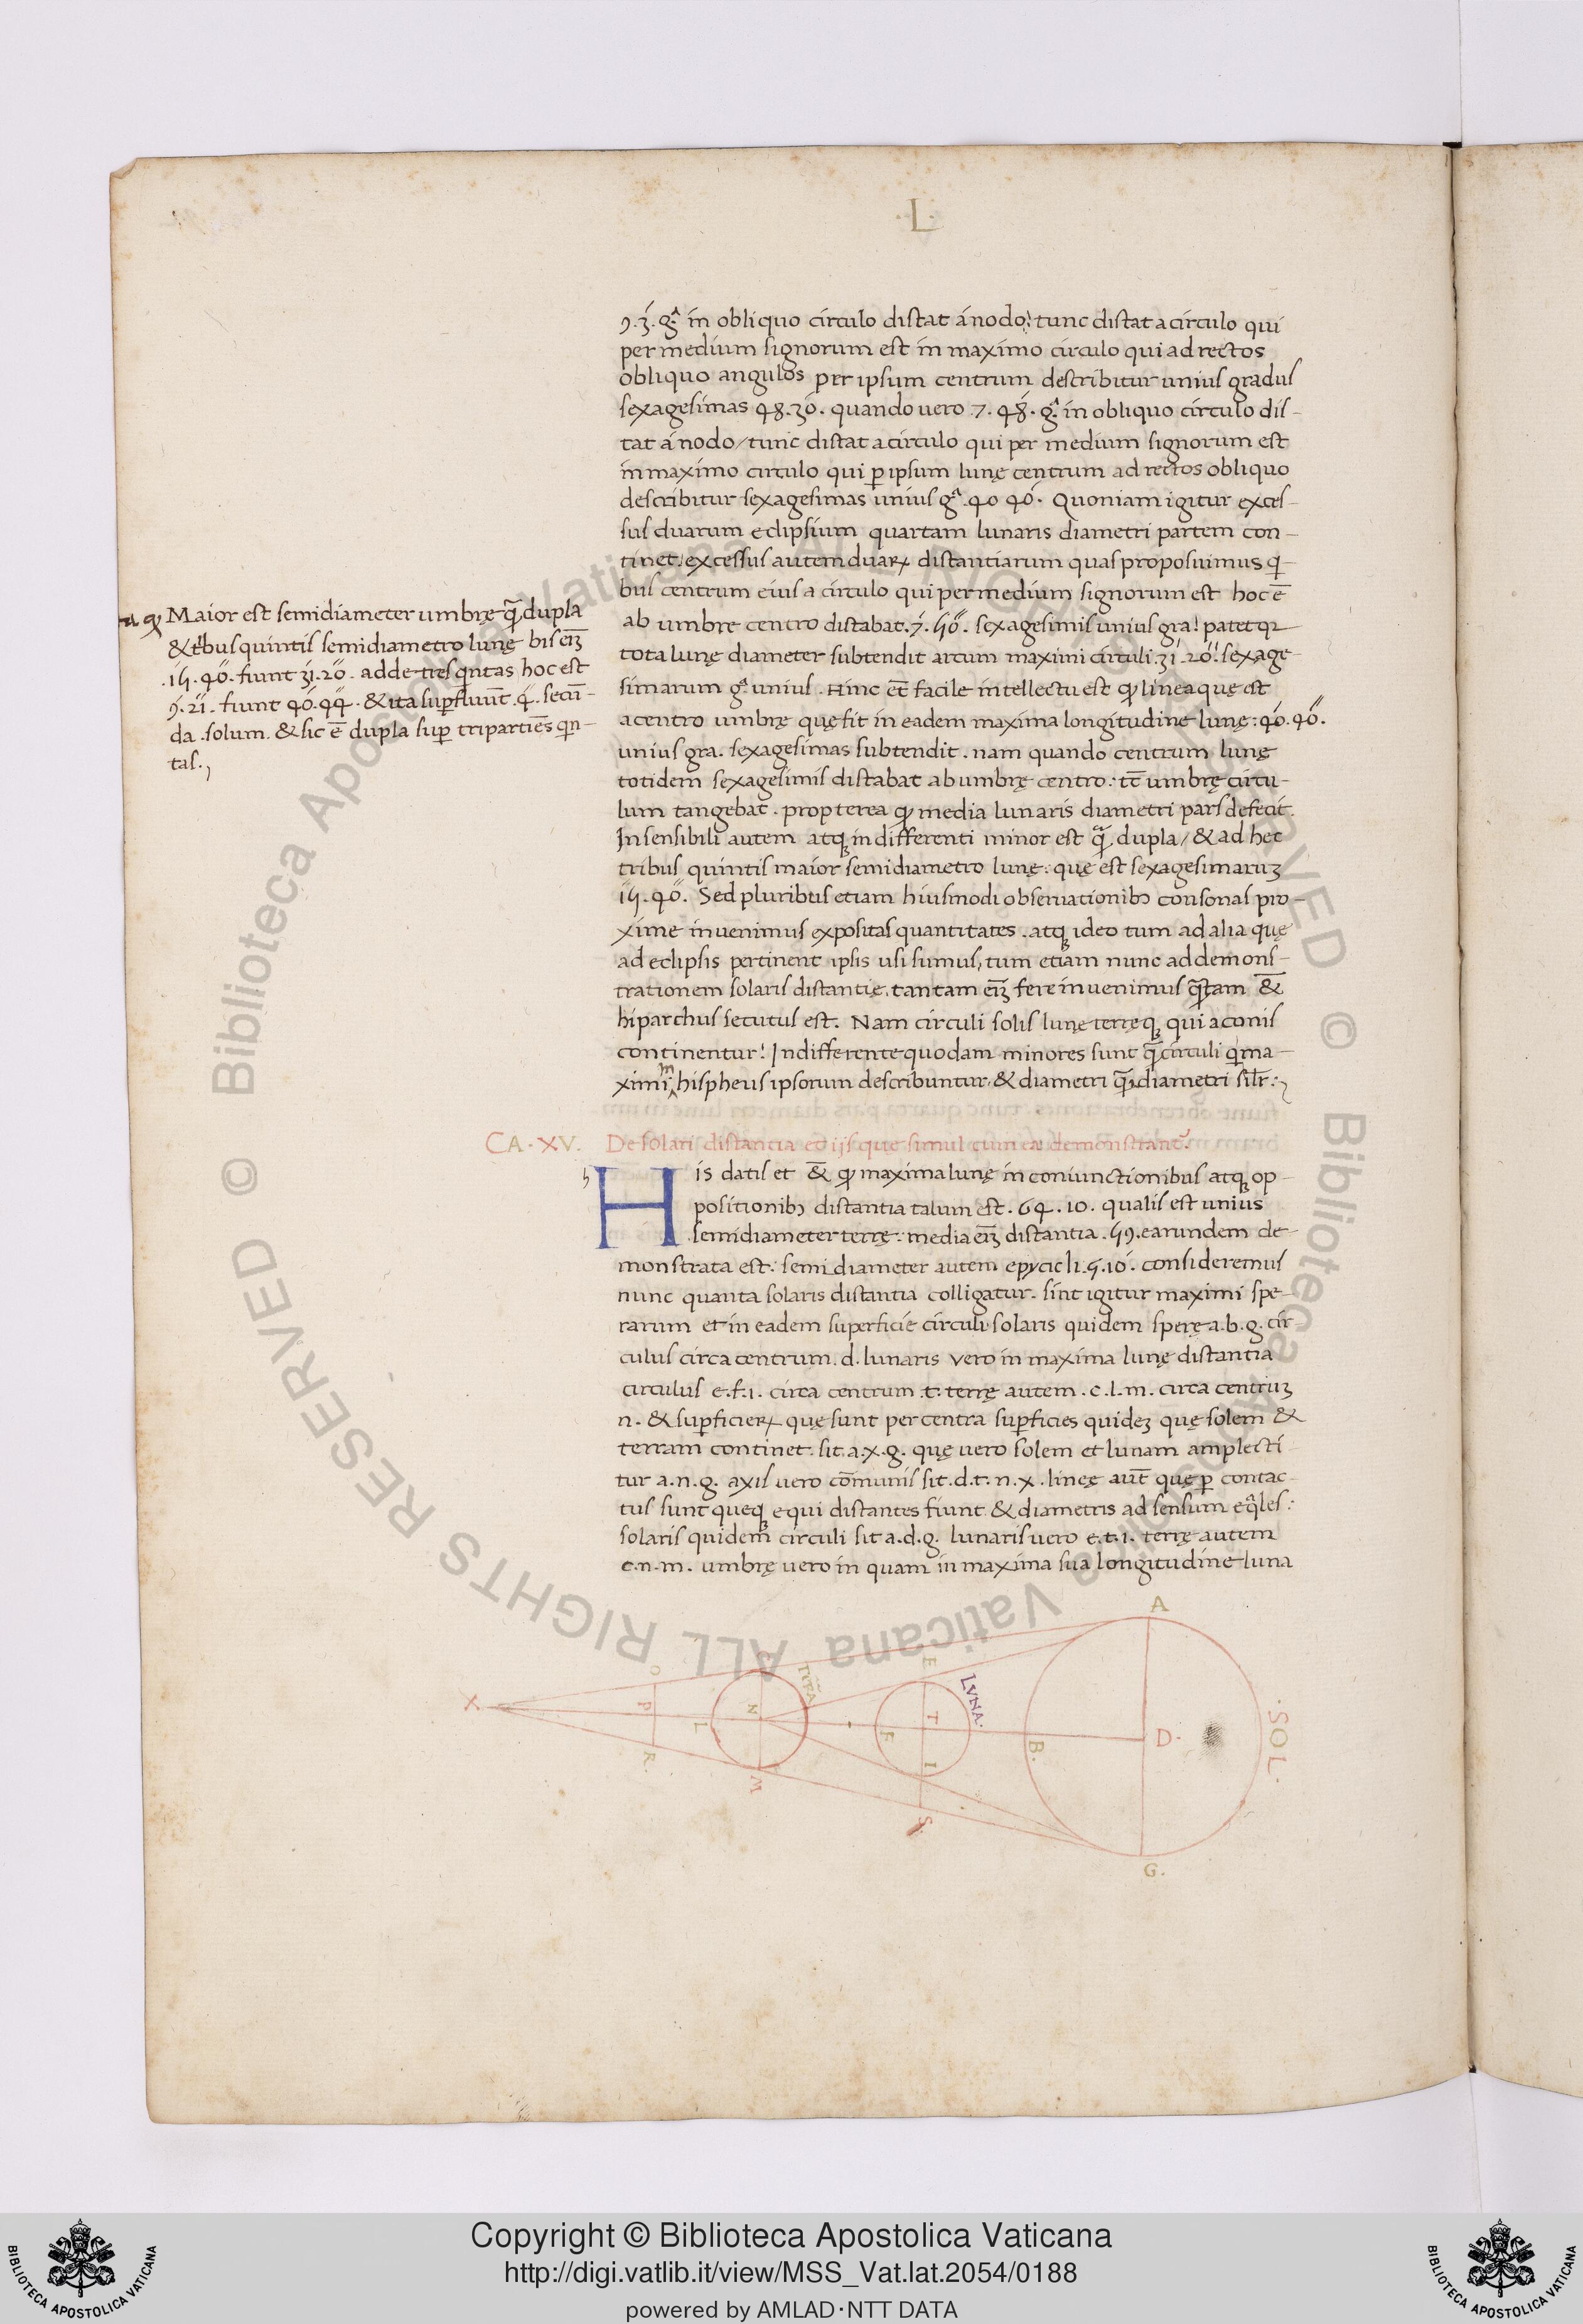 ·L·
9. 3́. gᵃ. in obliquo circulo distat á nodo: tunc distat a circulo qui
per medium signorum est in maximo circulo qui ad rectos
obliquo angulos per ipsum centrum describitur unius gradus
sexagesimas 48. 30́. quando vero .7. 48́. gᵃ. in obliquo circulo dis-
tat á nodo / tunc distat a circulo qui per medium signorum est
in maximo circulo qui ꝑ ipsum lunę centrum ad rectos obliquo
describitur sexagesimas unius gᵃ .40 40́. Quoniam igitur exces-
sus duarum eclipsium quartam lunaris diametri partem con-
tinet: excessus autem duaꝝ distantiarum quas proposuimus qi-
bus centrum eius a circulo qui per medium signorum est hoc ē
ab umbre centro distabat .7́. 50̋. sexagesimis unius gra! patet qꝫ
tota lunę diameter subtendit arcum maximi circuli .31́. 20̋. sexage-
simarum gᵃ unius. Hinc et̄ facile intellectu est ꝙ linea quę est
a centro umbrę quę fit in eadem maxima longitudine lunę: 40́. 40̋.
unius gra. sexagesimas subtendit. nam quando centrum lunę
totidem sexagesimis distabat ab umbrę centro: tc̄ umbrę circu-
lum tangebat. propterea ꝙ media lunaris diametri pars defecit.
Insensibili autem atqꝫ indifferenti minor est q̃ dupla / & ad hec
tribus quintis maior semidiametro lunę: quę est sexagesimaruꝫ
15́. 40̋. Sed pluribus etiam huiusmodi obseruationibꝰ consonas pro-
xime inuenimus expositas quantitates. atqꝫ ideo tum ad alia quę
ad eclipsis pertinent ipsis usi sumus, tum etiam nunc ad demons-
trationem solaris distantię. tantam eiꝫ fere inuenimus q̃tam &
hiparchus secutus est. Nam circuli solis lunę terręqꝫ qui a conis
continentur! Indifferente quodam minores sunt q̃ circuli qi ma-
ximi ᵐ hispheris ipsorum describuntur, & diametri q̃ diametri sil̄r:,
Maior est semidiameter umbrę q̃ dupla
& tⁱbus quintis semidiametro lunę bis eiꝫ
.15́. 40̋. fiunt 31́. 20̋. adde tres qⁱntas hoc est
9́. 24̋. fiunt 40́. 44̋. & ita suꝑfluūt .4̋. secū-
da .solum. & sic ē dupla suꝑ tripartiēs qn-
tas.,
CA · XV. De solari distantia et ijs que simul cum ea demonstranť.
h His datis et & ꝙ maxima lunę in coniunctionibus atqꝫ op-
positionibꝰ distantia talum est .64. 10. qualis est unius
semidiameter terrę: media eiꝫ distantia .59. earundem de-
monstrata est: semidiameter autem epycicli .5. 10́. consideremus
nunc quanta solaris distantia colligatur. sint igitur maximi spe-
rarum et in eadem superficie circuli solaris quidem sperę a.b.g. cir-
culus circa centrum .d. lunaris vero in maxima lunę distantia
circulus e.f.i. circa centrum .t. terrę autem .c.l.m. circa centruꝫ
n. & suꝑficieꝝ quę sunt per centra suꝑficies quideꝫ quę solem &
terram continet. sit a.x.g. quę vero solem et lunam amplecti-
tur a.n.g. axis vero cōmunis sit .d.t.n.x. linęę aut̄ quę ꝑ contac-
tus sunt queqꝫ equi distantes fiunt & diametris ad sensum eqᵃles:
solaris quidem circuli sit a.d.g. lunaris vero e.t.i. terrę autem
c.n.m. umbrę vero in quam in maxima sua longitudine luna
A
X O P R L N M C TERRA E F T I S LVNA. B. D. ·SOL·
G.
Copyright © Biblioteca Apostolica Vaticana
http://digi.vatlib.it/view/MSS_Vat.lat.2054/0188
powered by AMLAD·NTT DATA
BIBLIOTECA APOSTOLICA VATICANA
BIBLIOTECA APOSTOLICA VATICANA
© Biblioteca Apostolica Vaticana ALL RIGHTS RESERVED © Biblioteca Apostolica Vaticana ALL RIGHTS RESERVED